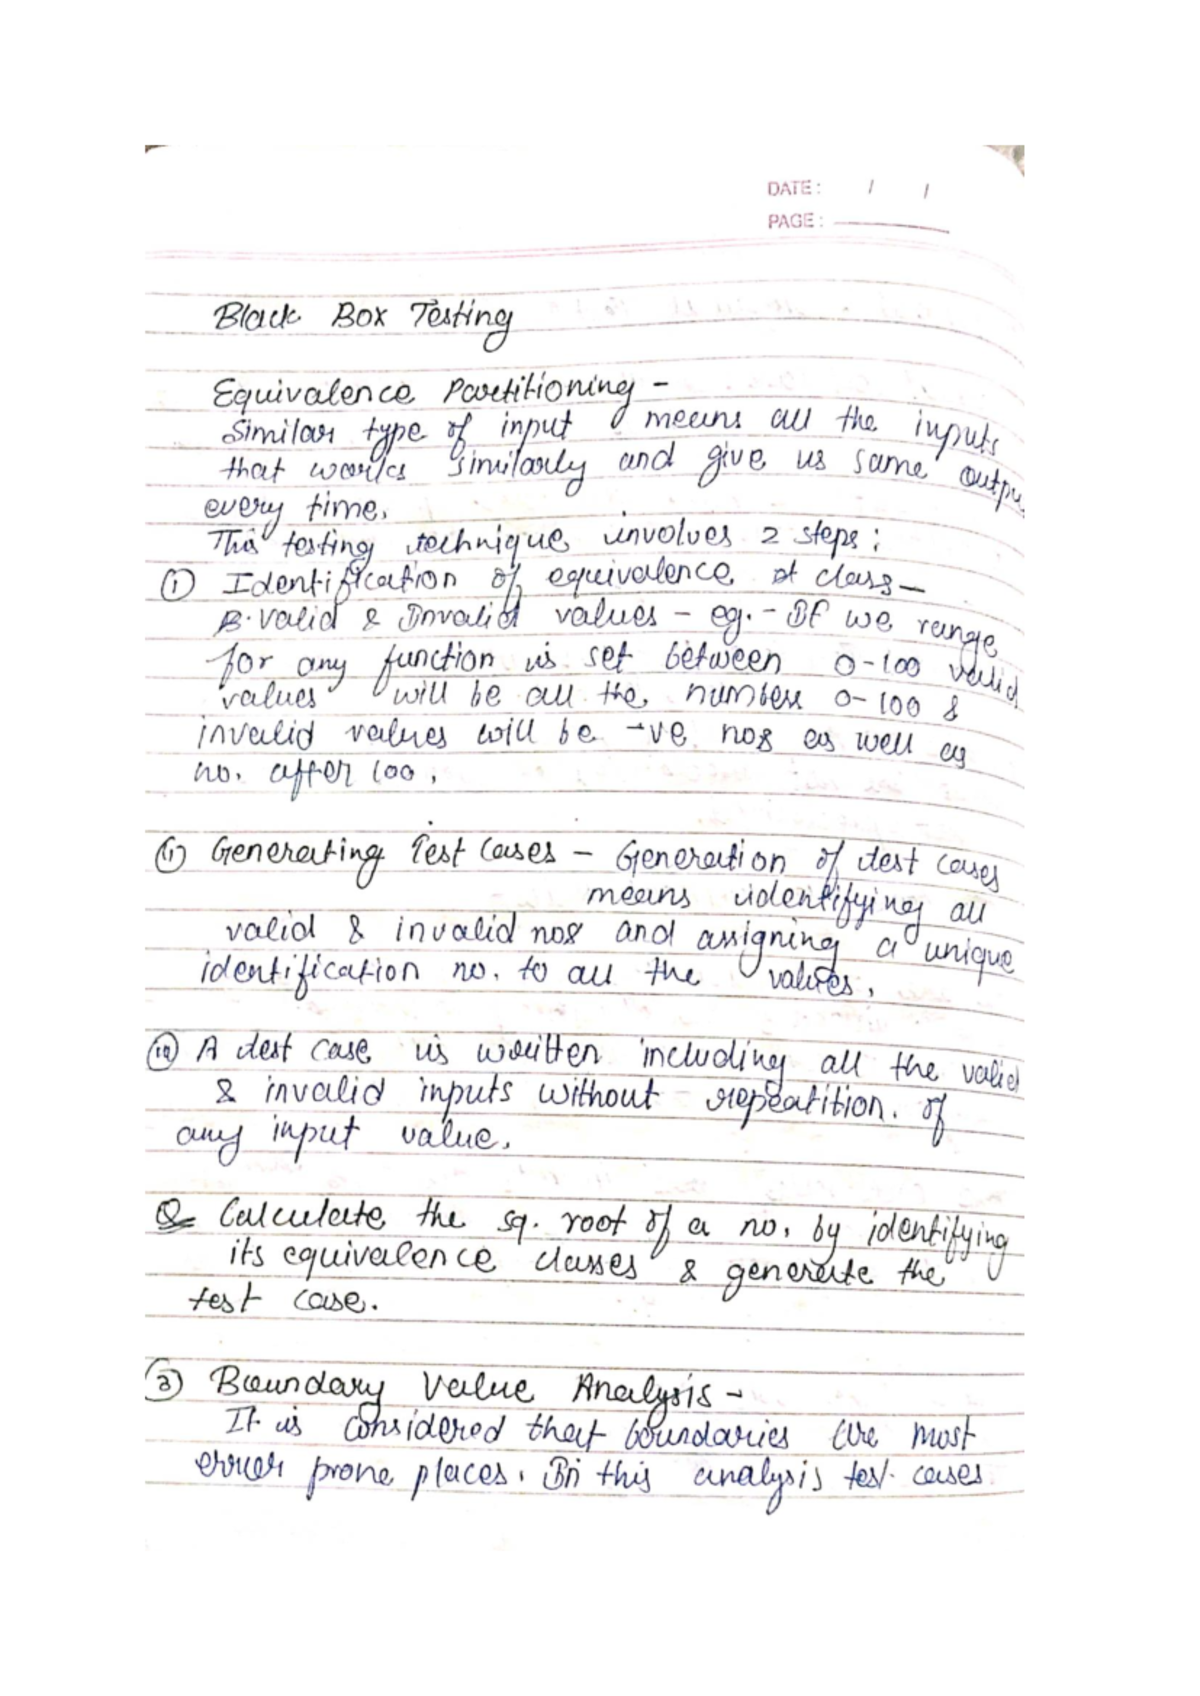 DATE : / /
PAGE :
Black Box Testing
Equivalence Partitioning -
Similar type of input means all the inputs
that works similarly and give us same outpu
every time.
This testing technique involves 2 steps :
(i) Identification of equivalence class -
Valid & Invalid values - eg. - If we range
for any function is set between 0-100 valid
values will be all the numbers 0-100 &
invalid values will be -ve nos as well as
no. after 100.
(ii) Generating Test Cases - Generation of test cases
means identifying all
valid & invalid nos and assigning a unique
identification no. to all the values.
(iii) A test case is written including all the valid
& invalid inputs without repeatition. of
any input value.
Q Calculate the sq. root of a no. by identifying
its equivalence classes & generate the
test case.
(2) Boundary Value Analysis -
It is considered that boundaries are most
error prone places. In this analysis test cases